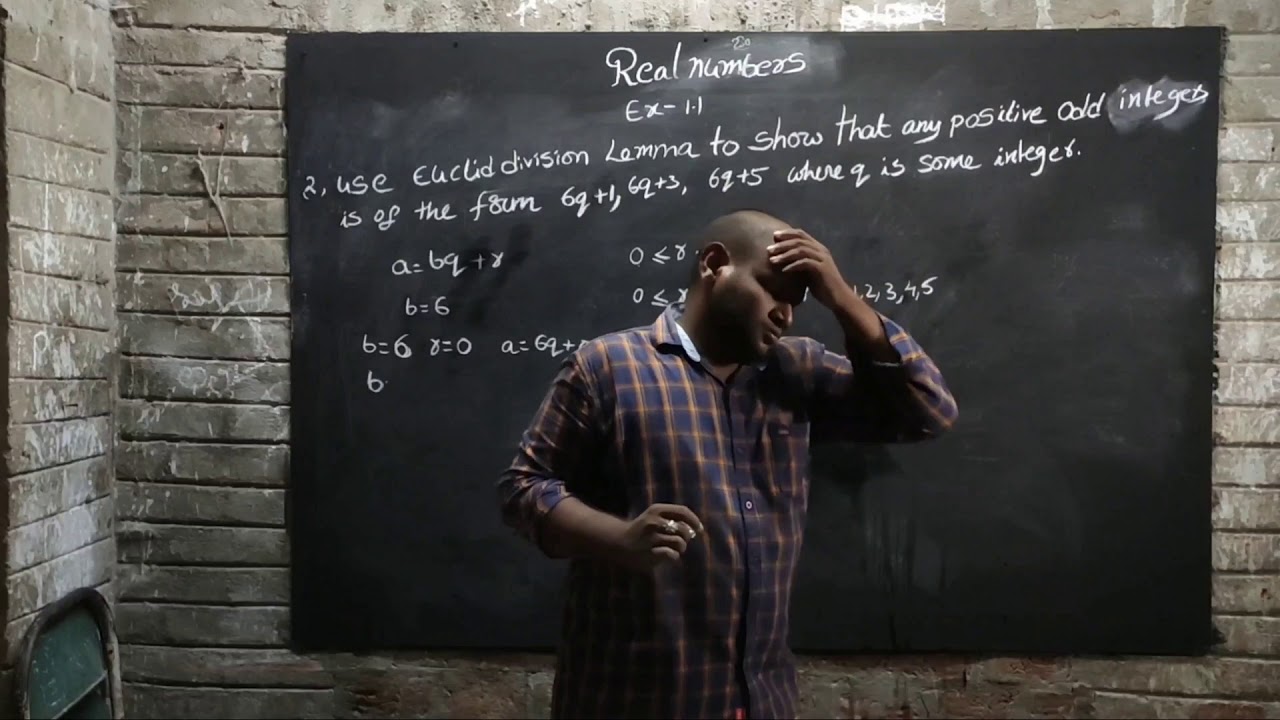 Real numbers
Ex-1.1
2, use Euclid division Lemma to show that any positive odd integers
is of the form 6q+1, 6q+3, 6q+5 where q is some integer.
a=bq+r 0≤r
b=6 0≤r 1,2,3,4,5
b=6 r=0 a=6q+
b